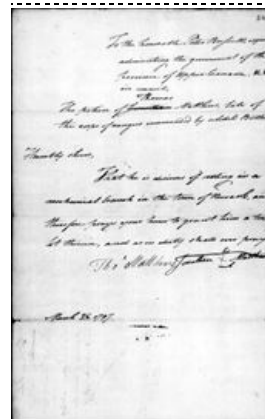 To the honorable Peter Russell, esquire
administring the government of the
Province of Upper Canada, &c
in council,
Thomas
The petition of Jonathan Mathews late of
the corps of rangers commanded by
Humbly shews,
That he is desirous of settling in a
mechanical branch in the town of Newark, and
therefore prays your honor to grant him a town
lot therein, and as in duty shall ever pray
Thos Mathews Jonathan Mathews
March 24, 1797.